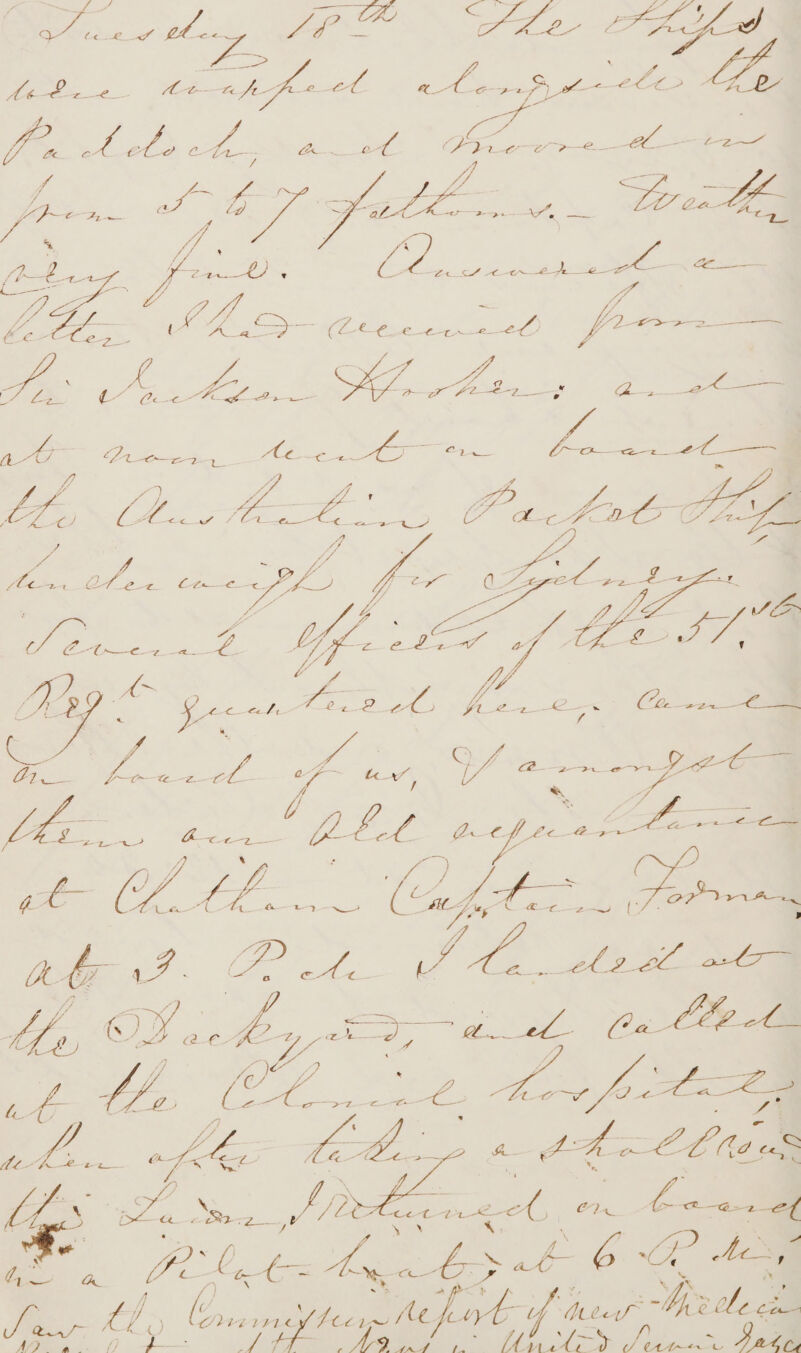 Tuesday 18th The Ships
were warped alongside the
Paddock, and moored in
from 5 to 7 fathoms. – Weather
very fine. Answered a
letter I had received from
Sir Jackson Hooker: and
at noon went on board
the Australian Packet Ship
underweigh for Sydney.
Several Officers of the 51.st
Reg.t quartered here, came
on board of us, & amongst
them our Old acquantance
at Chatham Captain Forman,
at 3. P. M I landed at
the Dockyard, and called
at the Colonial hospital,
when after taking a stroll round
the Town, I returned on board
in a Pilot-boat, at 6 P. M.,
Saw the Commission report of new Medical
of the News in United Service